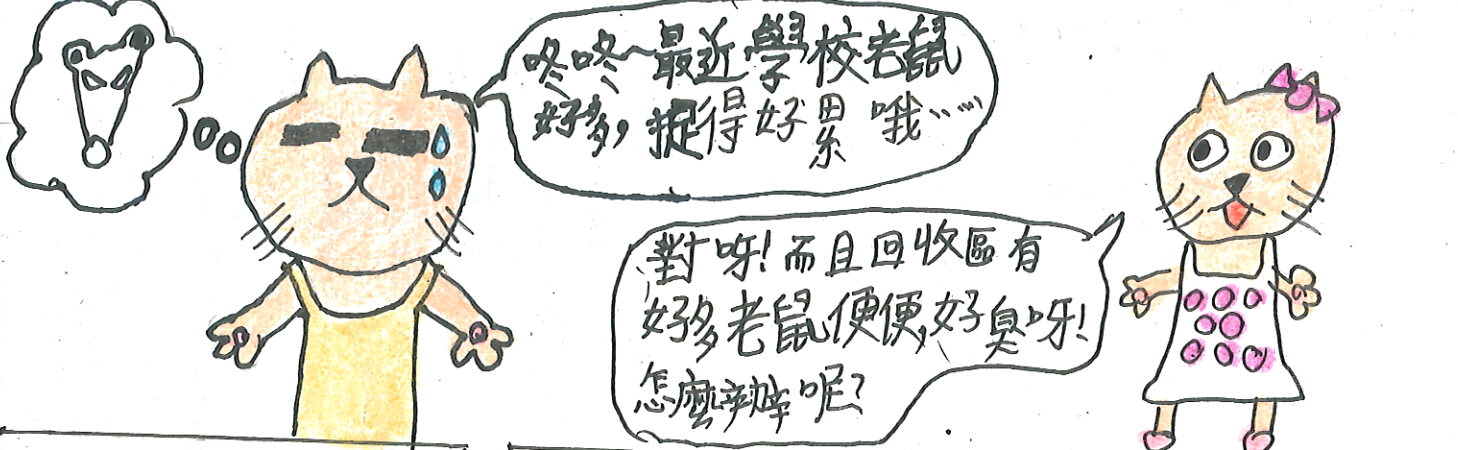 咚咚~最近學校老鼠
好多,捉得好累哦……
對呀!而且回收區有
好多老鼠便便,好臭呀!
怎麼辦呢?